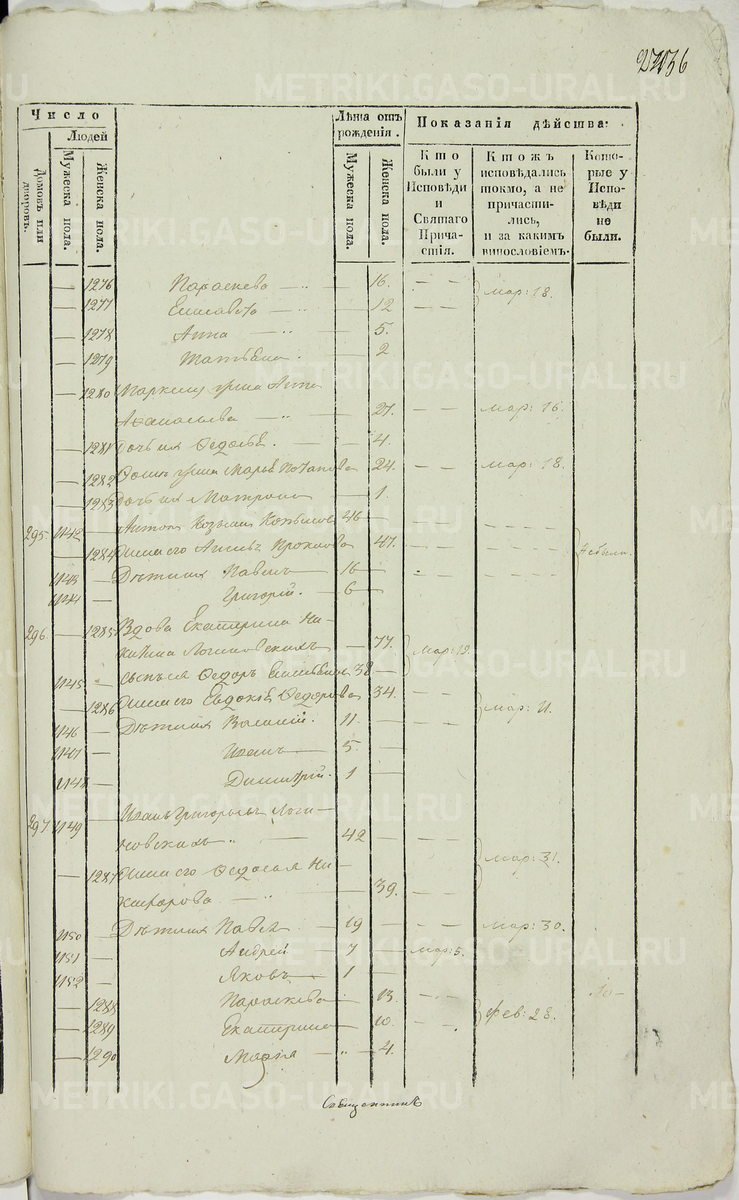 36
Число
Людей
Домовъ или дворовъ.
Мужеска пола.
Женска пола.
Лѣта отъ рожденія.
Мужеска пола.
Женска пола.
Показанія дѣйства:
Кто были у Исповѣди и Святаго Причастія.
Ктожъ исповѣдались токмо, а не причастились, и за какимъ винословіемъ.
Которые у Исповѣди не были.
— 1276 Параскева — „ — 16. — — мар: 18.
— 1277 Елисавета — „ — 12 — —
— 1278 Анна — „ — 5.
— 1279 Татьяна. — 2
— 1280 жена Анна
Афанасьева — „ — 27. — — мар: 16.
— 1281 Дочь их — 4.
— 1282 жена Марья Потапова 24. — — мар: 18.
— 1283 Дочь их Матрона — 1.
295 1142 — Антон Козьмин 46 — — —
— 1284 Жена его Прокпова 47. — — Небыли.
1143 — Дѣти их Павелъ — 16 — — —
1144 — Григорій. — 6 —
296 — 1285 Вдова Екатерина Ни-
Логиновскихъ — 77. мар: 19.
1145 — Сынъ ея Федоръ 38 —
— 1286 Жена его Евдокія Федорова 34. — —
1146 — Дѣти их Василий. 11. — — — мар: 21.
1147 — Иванъ — 5. —
1148 — Димитрій. 1 —
297 1149 — Иванъ Григорьевъ Логи-
новскихъ „ — 42 — — —
— 1287 Жена его Федосья Ни- мар: 31.
— „ — 39. — —
1150 — Дѣти их Павел — 19 — — — мар: 30.
1151 — Андрей — 7 — мар: 5.
1152 — Яковъ — 1 —
— 1288 Параскева — 13. — —
— 1289 Екатерина — 10. — — фев: 28.
— 1290 Марія — „ — 4.
Священникъ
METRIKI.GASO-URAL.RU